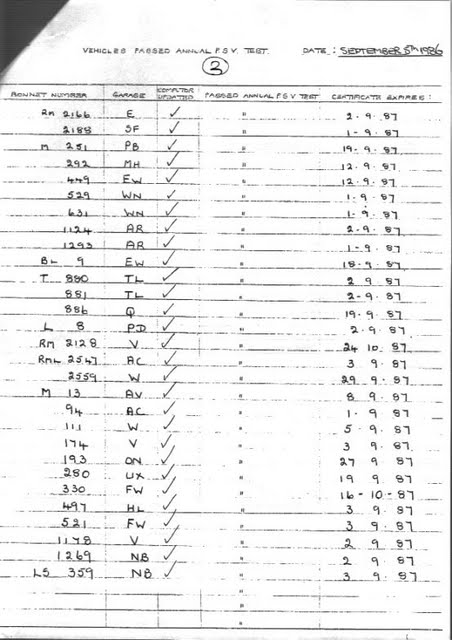 VEHICLES PASSED ANNUAL P.S.V. TEST. DATE: SEPTEMBER 5TH 1986
3
BONNET NUMBER GARAGE COMPUTOR UPDATED PASSED ANNUAL P.S.V TEST CERTIFICATE EXPIRES:
RM 2166 E ✓ " 2-9-87
2188 SF ✓ " 1-9-87
M 251 PB ✓ " 19-9-87
292 MH ✓ " 12.9.87
449 EW ✓ " 12.9.87
529 WN ✓ " 1.9.87
631 WN ✓ " 1-9-87
1124 AR ✓ " 2-9-87
1293 AR ✓ " 1-9-87
BL 9 EW ✓ " 18-9-87
T 880 TL ✓ " 2 9 87
881 TL ✓ " 2-9-87
886 Q ✓ " 19.9.87
L 8 PD ✓ " 2.9.87
RM 2128 V ✓ " 24 10. 87
RML 2547 AC ✓ " 3 9 87
2559 W ✓ " 29 9 87
M 13 AV ✓ " 8 9 87
94 AC ✓ " 1. 9 87
111 W ✓ " 5. 9 87
174 V ✓ " 3 9 87
193 ON ✓ " 27 9 87
280 UX ✓ " 19 9 87
330 FW ✓ " 16-10-87
497 HL ✓ " 3 9 87
521 FW ✓ " 3 9 87
1178 V ✓ " 2 9 87
1269 NB ✓ " 2 9 87
LS 359 NB ✓ " 3 9 87
"
"